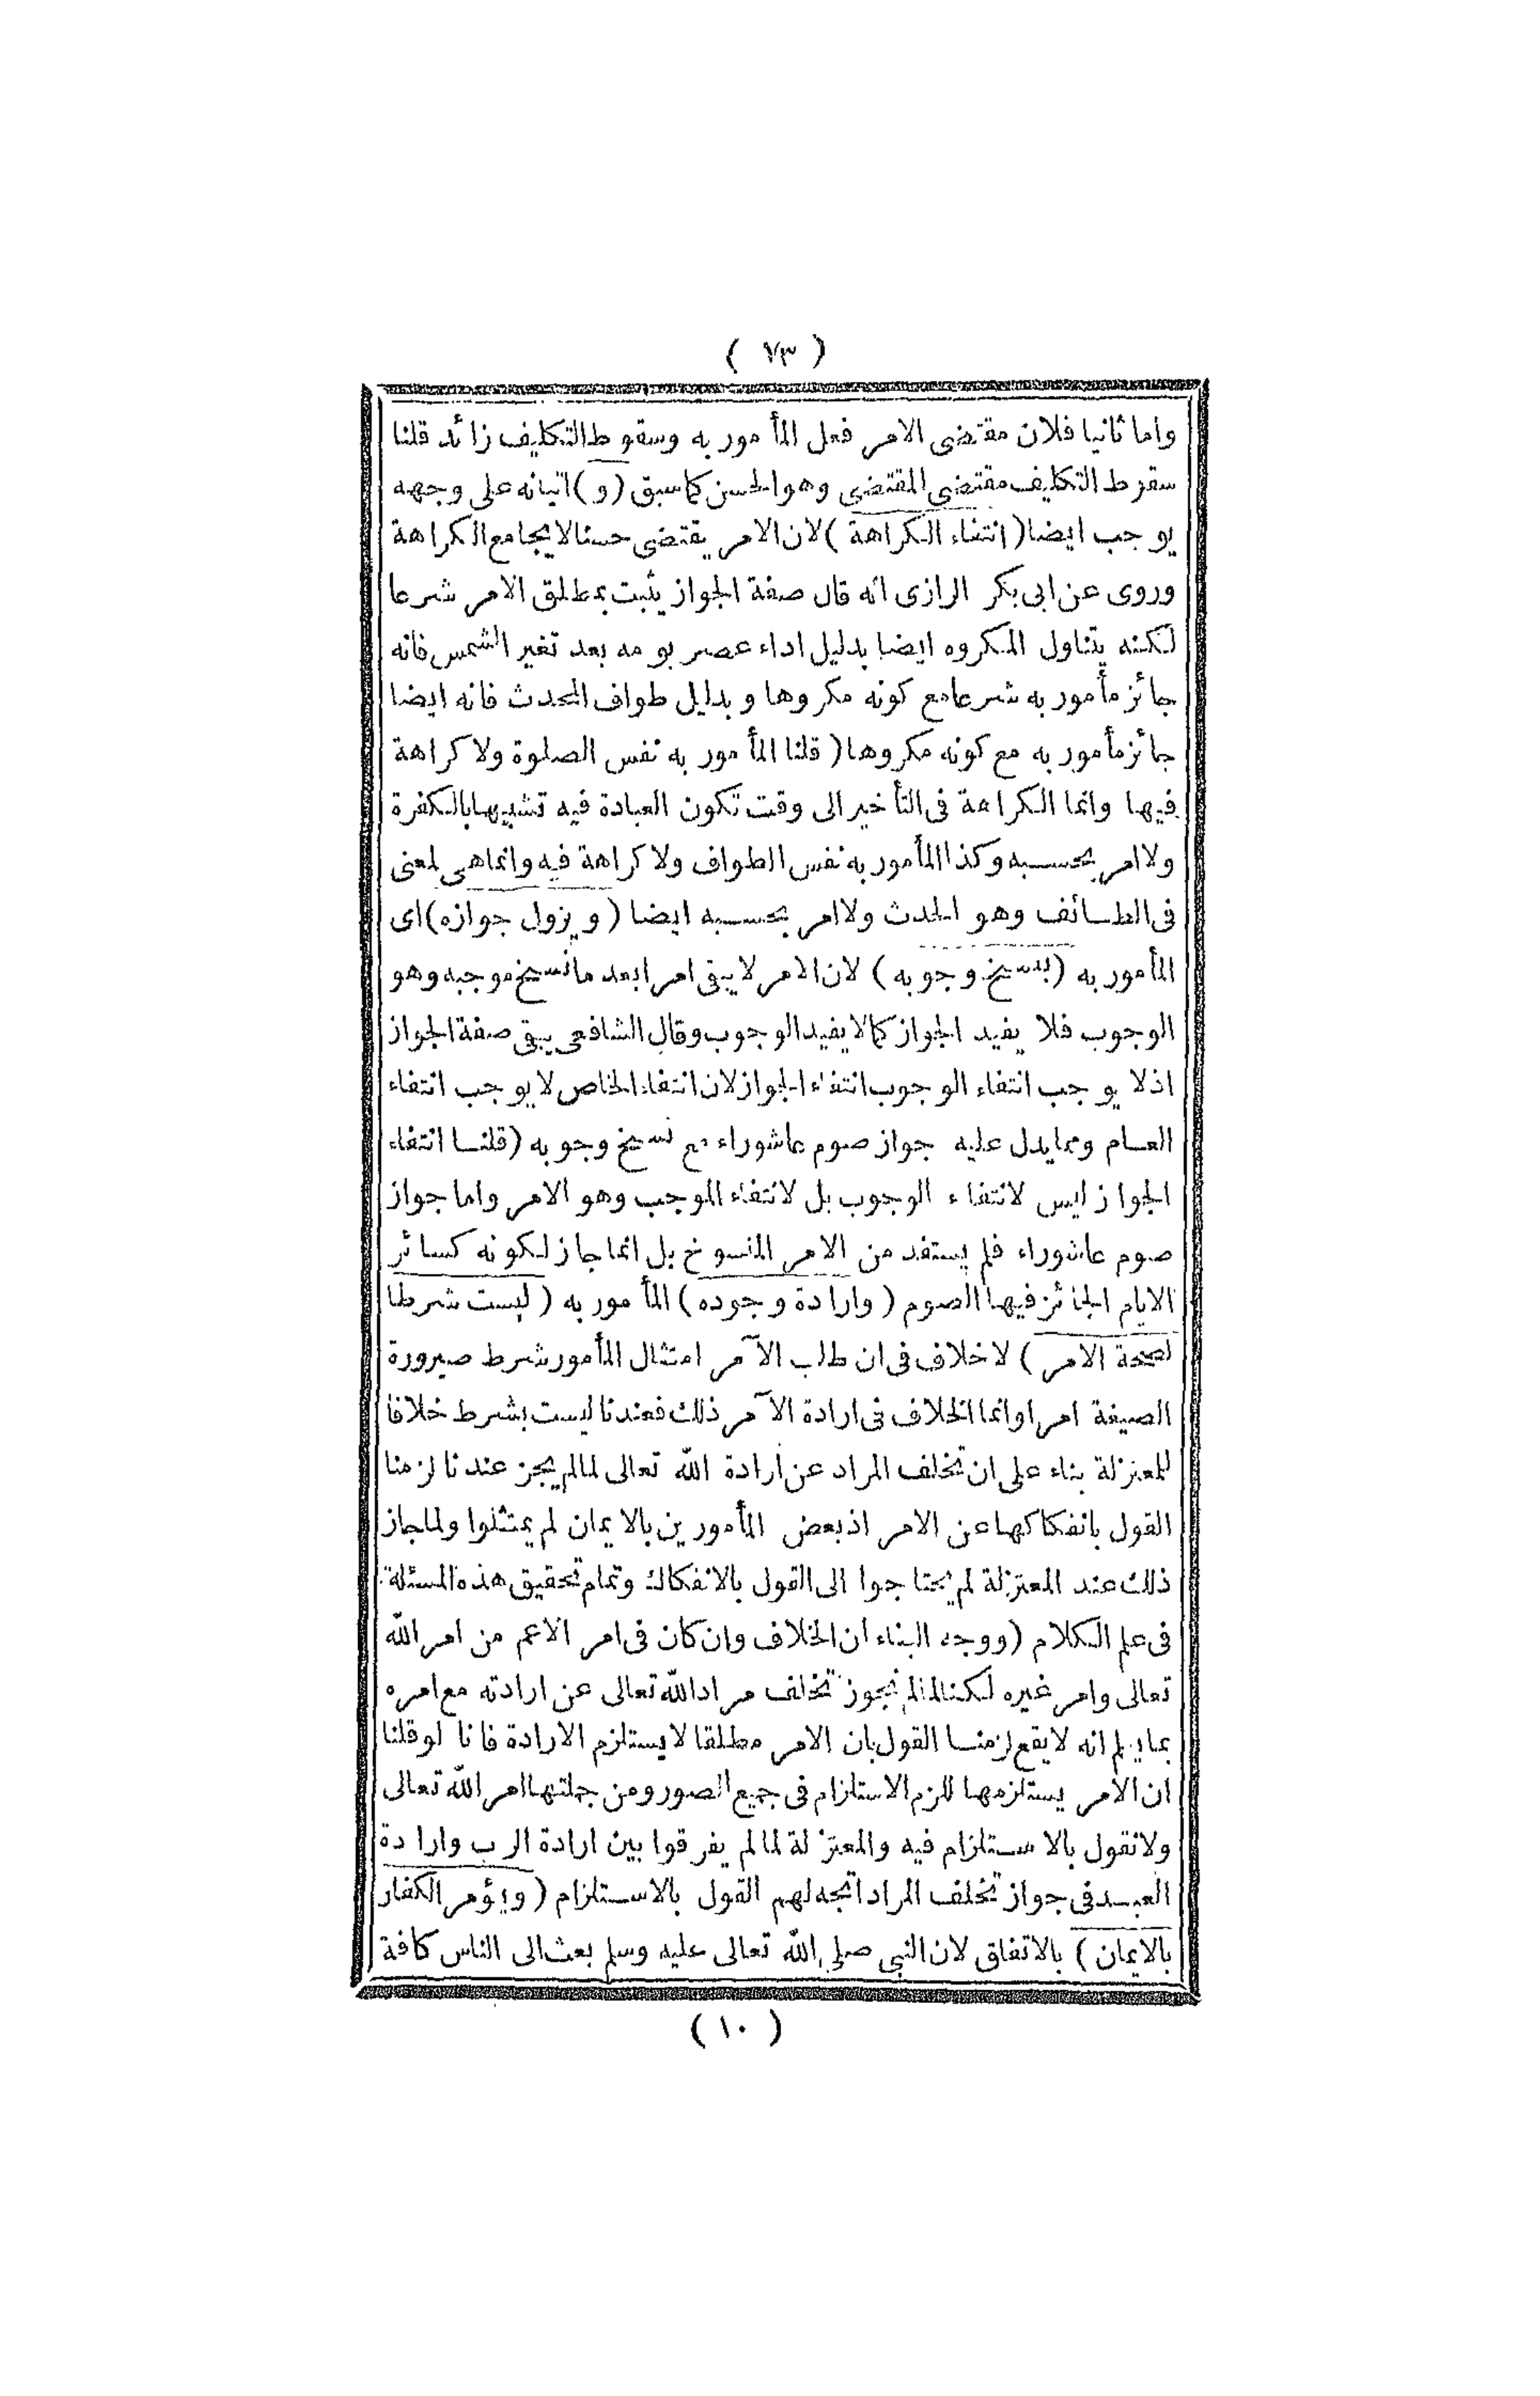 ( ٧٣ )
واما ثانيا فلان مقتضى الامر فعل المأمور به وسقوط التكليف زائد قلنا
سقوط التكليف مقتضى المقتضى وهو الحسن كما سبق (و) اتيانه على وجهه
يوجب ايضا (انتفاء الكراهة) لان الامر يقتضى حسنا لا يجامع الكراهة
وروى عن ابى بكر الرازى انه قال صفة الجواز يثبت بمطلق الامر شرعا
لكنه يتناول المكروه ايضا بدليل اداء عصر يومه بعد تغير الشمس فانه
جائز مأمور به شرعا مع كونه مكروها وبدليل طواف المحدث فانه ايضا
جائز مأمور به مع كونه مكروها ( قلنا المأمور به نفس الصلوة ولا كراهة
فيها وانما الكراهة فى التأخير الى وقت تكون العبادة فيه تشبيها بالكفرة
ولا امر بحسبه وكذا المأمور به نفس الطواف ولا كراهة فيه وانما هى لمعنى
فى الطائف وهو الحدث ولا امر بحسبه ايضا (ويزول جوازه) اى
المأمور به (بنسخ وجوبه) لان الامر لا يبقى امرا بعد ما نسخ موجبه وهو
الوجوب فلا يفيد الجواز كما لا يفيد الوجوب وقال الشافعى يبقى صفة الجواز
اذ لا يوجب انتفاء الوجوب انتفاء الجواز لان انتفاء الخاص لا يوجب انتفاء
العام ومما يدل عليه جواز صوم عاشوراء مع نسخ وجوبه (قلنا انتفاء
الجواز ليس لانتفاء الوجوب بل لانتفاء الموجب وهو الامر واما جواز
صوم عاشوراء فلم يستفد من الامر المنسوخ بل انما جاز لكونه كسائر
الايام الجائز فيها الصوم (وارادة وجوده) المأمور به (ليست شرطا
لصحة الامر) لا خلاف فى ان طلب الآمر امتثال المأمور شرط صيرورة
الصيغة امرا وانما الخلاف فى ارادة الآمر ذلك فعندنا ليست بشرط خلافا
للمعتزلة بناء على ان تخلف المراد عن ارادة الله تعالى لما لم يجز عندنا لزمنا
القول بانفكاكها عن الامر اذ بعض المأمورين بالايمان لم يمتثلوا ولما جاز
ذلك عند المعتزلة لم يحتاجوا الى القول بالانفكاك وتمام تحقيق هذه المسئلة
فى علم الكلام (ووجه البناء ان الخلاف وان كان فى امر الاعم من امر الله
تعالى وامر غيره لكنا لما لم نجوز تخلف مراد الله تعالى عن ارادته مع امره
بما يعلم انه لا يقع لزمنا القول بان الامر مطلقا لا يستلزم الارادة فانا لو قلنا
ان الامر يستلزمها للزم الاستلزام فى جميع الصور ومن جملتها امر الله تعالى
ولا نقول بالاستلزام فيه والمعتزلة لما لم يفرقوا بين ارادة الرب وارادة
العبد فى جواز تخلف المراد اتجه لهم القول بالاستلزام (ويؤمر الكفار
بالايمان) بالاتفاق لان النبى صلى الله تعالى عليه وسلم بعث الى الناس كافة
( ١٠ )